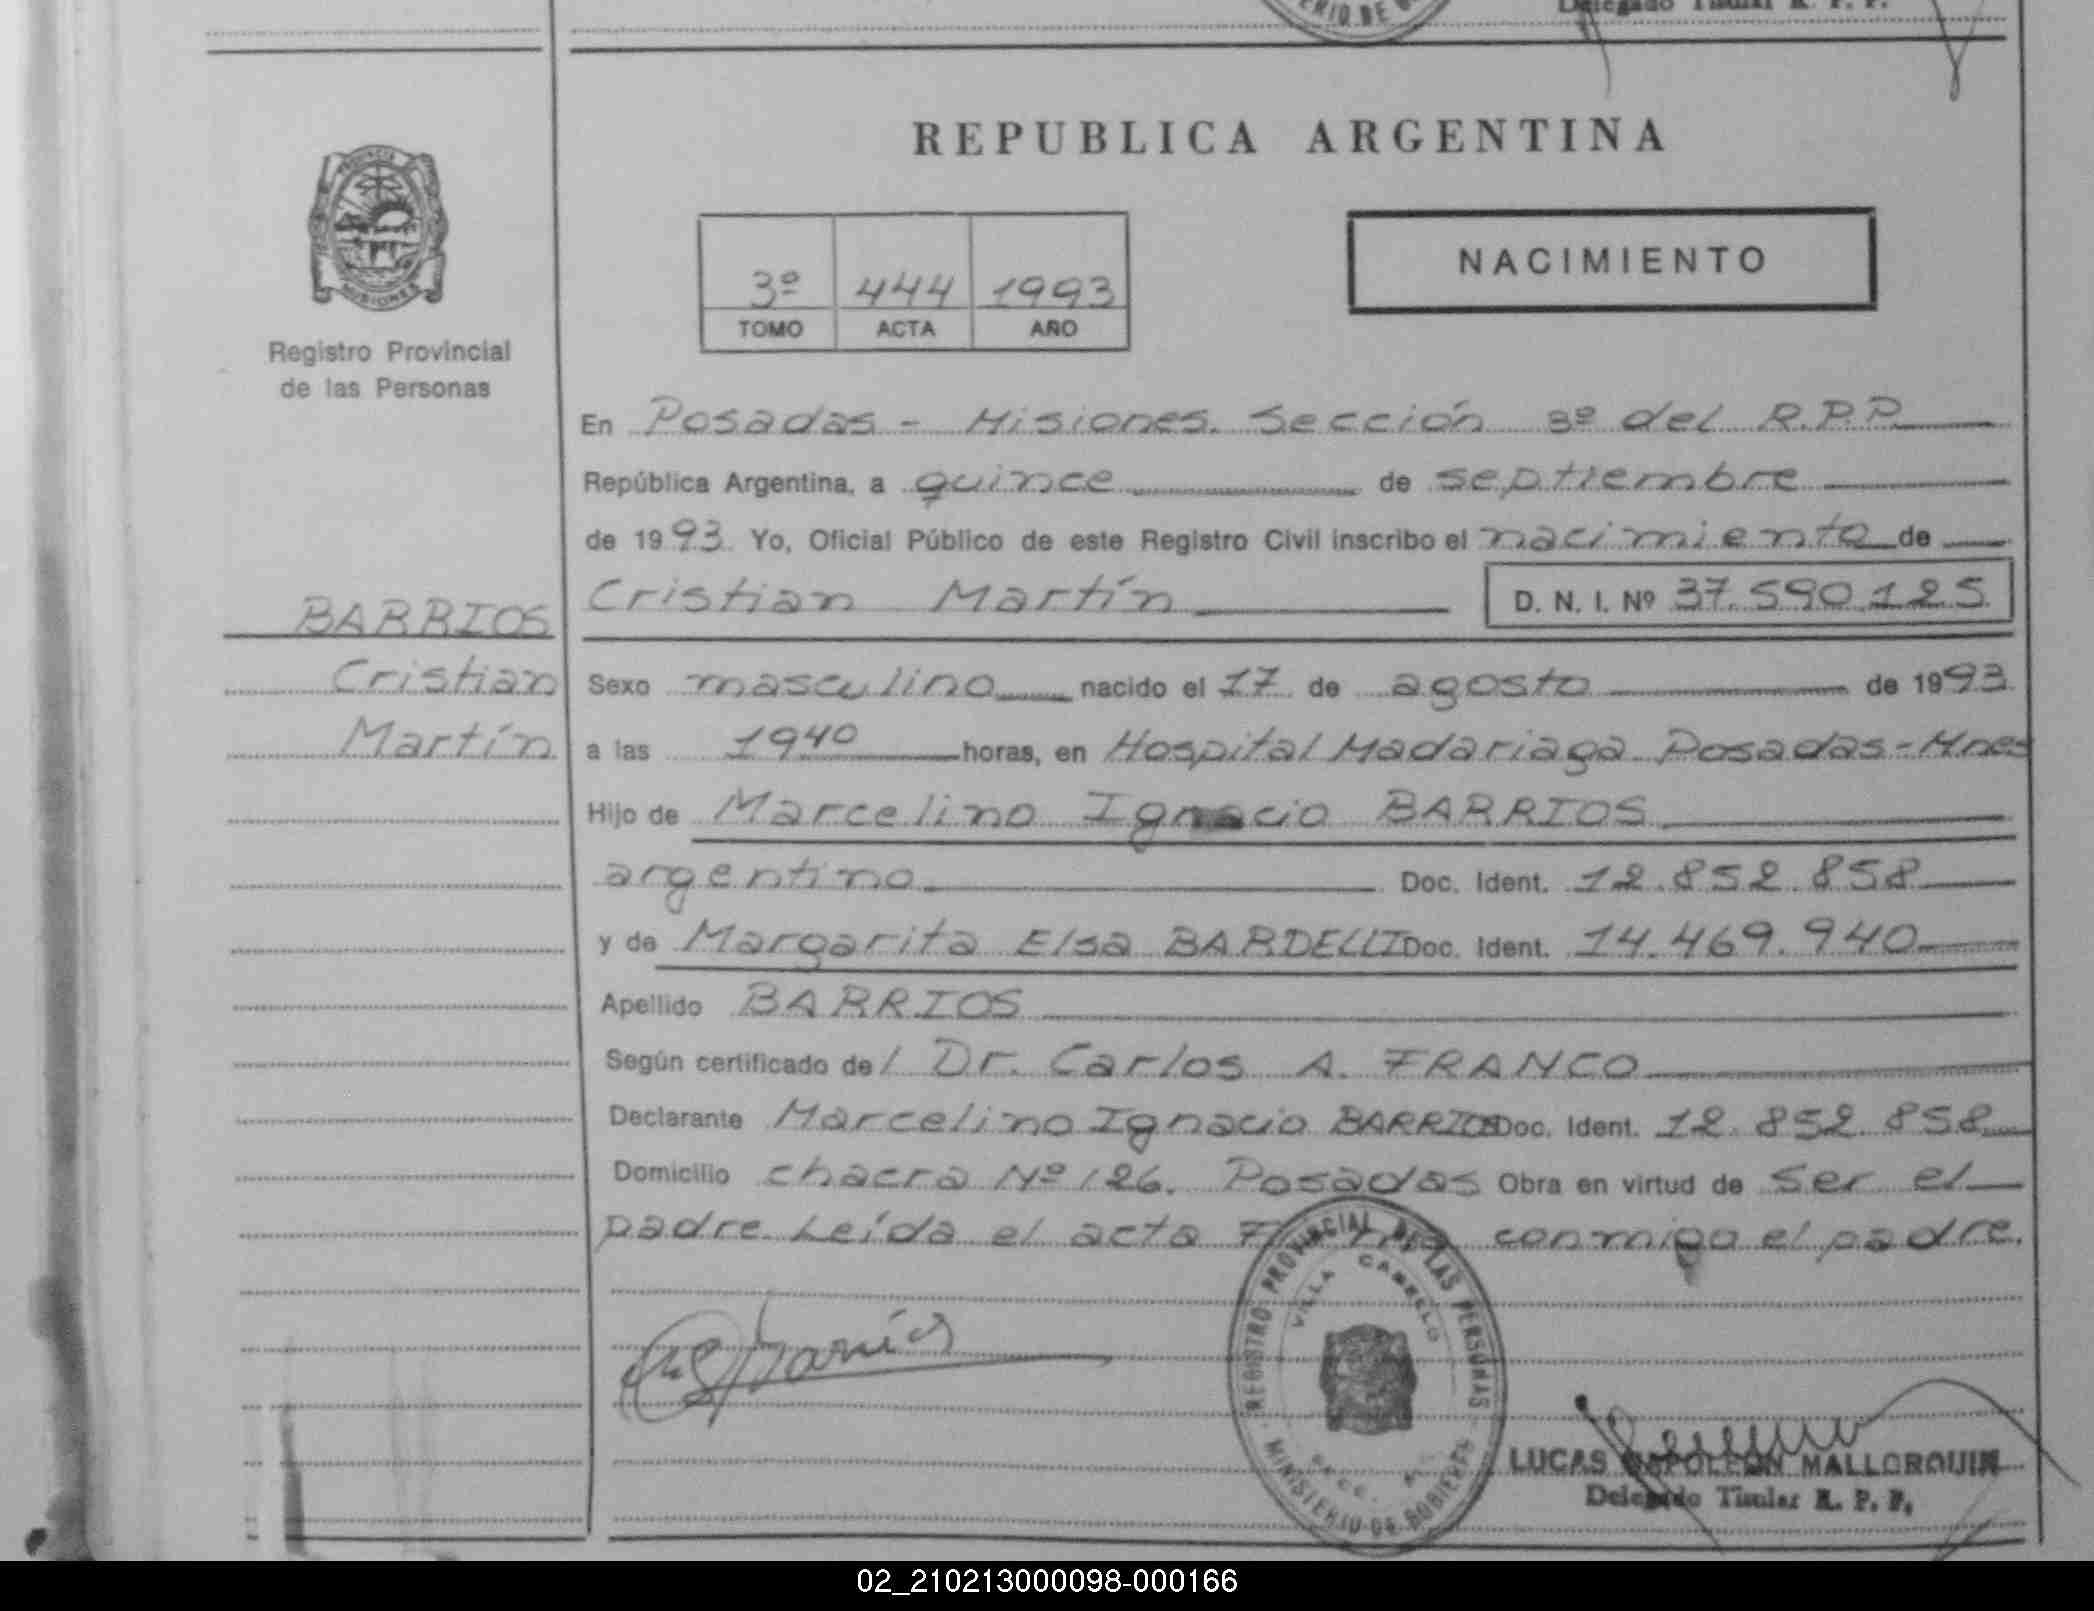 Delegado Titular R. P. P.
REPUBLICA ARGENTINA
PROVINCIA
MISIONES
Registro Provincial
de las Personas
3º 444 1993
TOMO ACTA AÑO
NACIMIENTO
En Posadas - Misiones. Sección 3º del R.P.P.
República Argentina, a quince de septiembre
de 1993. Yo, Oficial Público de este Registro Civil inscribo el nacimiento de
BARRIOS
Cristian
Martín
Cristian Martín D. N. I. Nº 37.590.125
Sexo masculino nacido el 17 de agosto de 1993
a las 1940 horas, en Hospital Madariaga Posadas-Mnes
Hijo de Marcelino Ignacio BARRIOS
argentino Doc. Ident. 12.852.858
y de Margarita Elsa BARDELLI Doc. Ident. 14.469.940
Apellido BARRIOS
Según certificado del Dr. Carlos A. FRANCO
Declarante Marcelino Ignacio BARRIOS Doc. Ident. 12.852.858
Domicilio chacra Nº 126. Posadas Obra en virtud de ser el
padre. Leída el acta conmigo el padre.
REGISTRO PROVINCIAL DE LAS PERSONAS
VILLA CABELLO
MINISTERIO DE GOBIERNO
LUCAS NAPOLEON MALLORQUIN
Delegado Titular R. P. P.
02_210213000098-000166